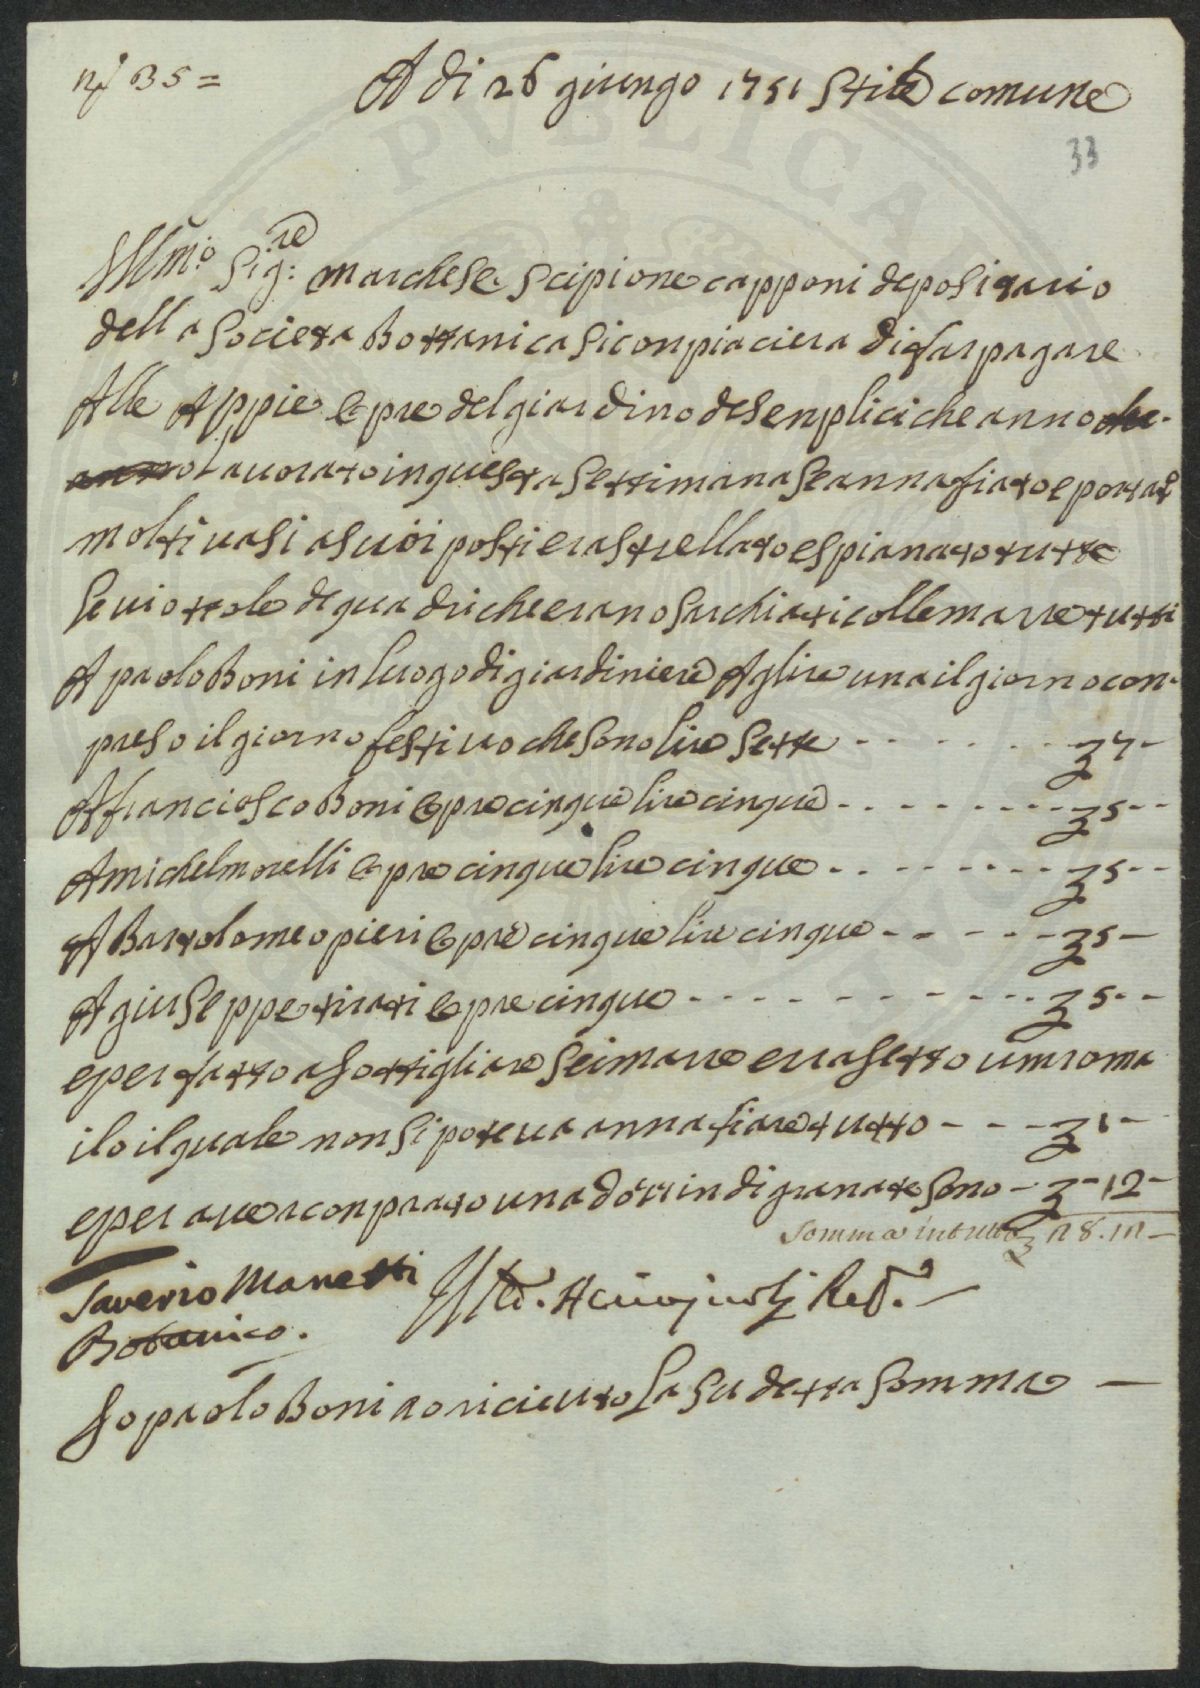 nº 35 =
A di 26 giungo 1751 Stile comune
33
Illmo. Sig:re marchese Scipione capponi depositario
della Societa Bottanica Si conpiaciera di far pagare
Alle Appie opre del giardino de Senplici che anno che
anno Lavorato in questa Settimana Se annafiato e portato
molti vasi a suoi posti e rastrellato e spianato tutte
le viottole de quadri che erano Sarchiati colle marre tutti
A paolo Boni in luogo di giardiniere A lire una il giorno con-
preso il giorno festivo che Sono lire Sette - - - - - - - ʒ 7 -
A franciosco Boni opre cinque lire cinque - - - - - - - ʒ 5 - -
A michel morelli opre cinque lire cinque - - - - - - - ʒ 5 - -
A Bartolomeo pieri opre cinque lire cinque - - - - - ʒ 5 -
A giuseppe tirati opre cinque - - - - - - - - - - ʒ 5 - -
e per fatto asottigliare Sei marre e rasetto um roma
ilo il quale non si poteva annafiare tutto - - - - ʒ 1 -
e per aver conprato una dozzin di granate Sono - ʒ - 12 -
Somma in tutto ʒ 28. 12 -
Saverio Manetti
Botanico.
 Acciajuoli
Io paolo Boni ao riceuto La Su detta Somma —